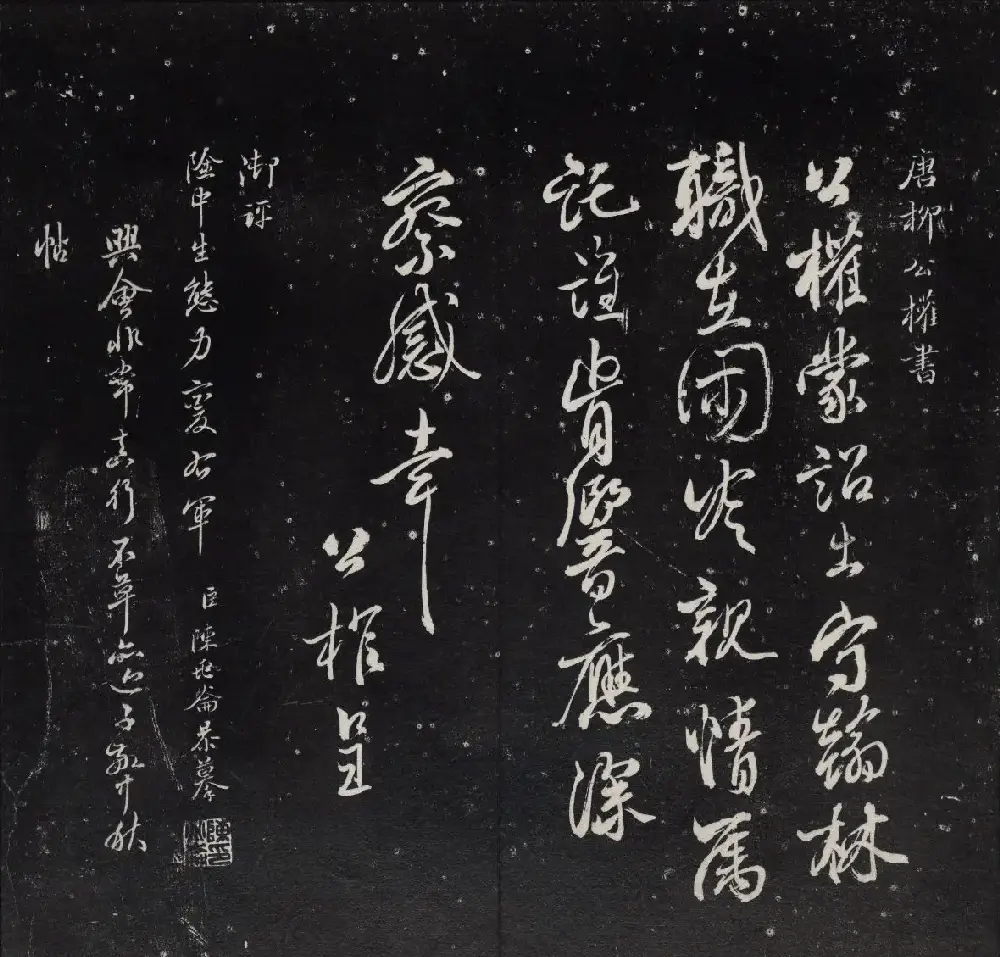 唐柳公權書
公權蒙詔出守翰林
職在閑冷親情屬
託誰肯響應深
察感幸
公權呈
御評
險中生態力變右軍
臣陳兆崙恭摹
興會非常真行不草子敬秋
帖